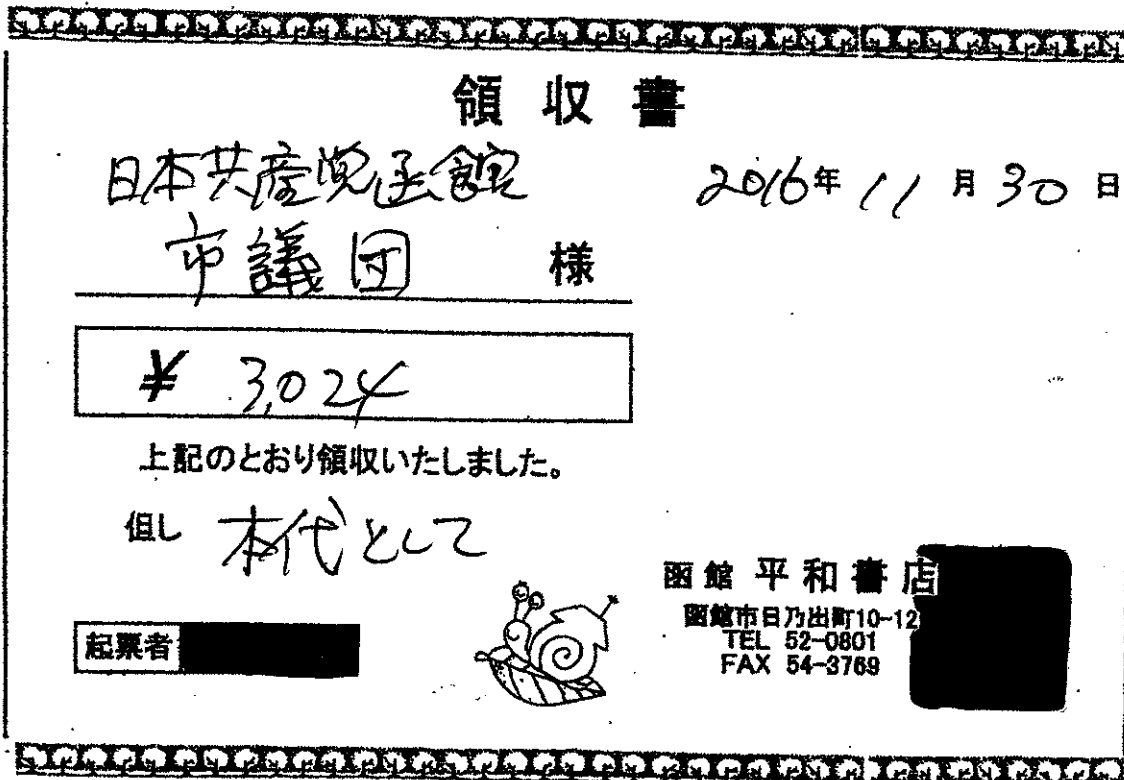 領収書
日本共産党函館 2016年11月30日
市議団 様
¥ 3,024
上記のとおり領収いたしました。
但し 本代として
函館 平和書店
函館市日乃出町10-12
TEL 52-0801
FAX 54-3769
起票者